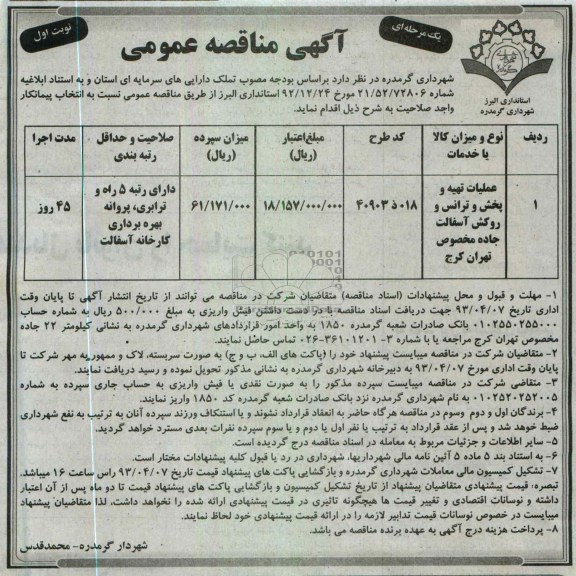 نوبت اول
یک مرحله‌ای
آگهی مناقصه عمومی
استانداری البرز
شهرداری گرمدره
شهرداری گرمدره در نظر دارد براساس بودجه مصوب تملک دارایی های سرمایه ای استان و به استناد ابلاغیه
شماره ۲۱/۵۲/۷۲۸۰۶ مورخ ۹۲/۱۲/۲۴ استانداری البرز از طریق مناقصه عمومی نسبت به انتخاب پیمانکار
واجد صلاحیت به شرح ذیل اقدام نماید.
ردیف | نوع و میزان کالا یا خدمات | کد طرح | مبلغ اعتبار (ریال) | میزان سپرده (ریال) | صلاحیت و حداقل رتبه بندی | مدت اجرا
۱ | عملیات تهیه و پخش و ترانس و روکش آسفالت جاده مخصوص تهران کرج | ۴۰۹۰۳ ذ ۰۱۸ | ۱۸/۱۵۷/۰۰۰/۰۰۰ | ۶۱/۱۷۱/۰۰۰ | دارای رتبه ۵ راه و ترابری، پروانه بهره برداری کارخانه آسفالت | ۴۵ روز
۱- مهلت و قبول و محل پیشنهادات (اسناد مناقصه) متقاضیان شرکت در مناقصه می توانند از تاریخ انتشار آگهی تا پایان وقت
اداری تاریخ ۹۳/۰۴/۰۷ جهت دریافت اسناد مناقصه با در دست داشتن فیش واریزی به مبلغ ۵۰۰/۰۰۰ ریال به شماره حساب
۰۱۰۲۵۵۰۲۵۵۰۰۰ بانک صادرات شعبه گرمدره ۱۸۵۰ به واحد امور قراردادهای شهرداری گرمدره به نشانی کیلومتر ۲۲ جاده
مخصوص تهران کرج مراجعه یا با شماره ۳-۳۶۱۰۱۲۰۱-۰۲۶ تماس حاصل نمایند.
۲- متقاضیان شرکت در مناقصه میبایست پیشنهاد خود را (پاکت های الف، ب و ج) به صورت سربسته، لاک و ممهور به مهر شرکت تا
پایان وقت اداری مورخ ۹۳/۰۴/۰۷ به دبیرخانه شهرداری گرمدره به نشانی مذکور تحویل نموده و رسید دریافت نمایند.
۳- متقاضی شرکت در مناقصه میبایست سپرده مذکور را به صورت نقدی یا فیش واریزی به حساب جاری سپرده به شماره
۰۱۰۲۵۲۰۲۵۲۰۰۵ به نام شهرداری گرمدره نزد بانک صادرات شعبه گرمدره کد ۱۸۵۰ واریز نمایند.
۴- برندگان اول و دوم و سوم در مناقصه هرگاه حاضر به انعقاد قرارداد نشوند و یا استنکاف ورزند سپرده آنان به ترتیب به نفع شهرداری
ضبط خواهد شد و پس از عقد قرارداد به ترتیب با نفر اول یا دوم و یا سوم سپرده نفرات بعدی مسترد خواهد گردید.
۵- سایر اطلاعات و جزئیات مربوط به معامله در اسناد مناقصه درج گردیده است.
۶- به استناد بند ۵ ماده ۵ آئین نامه مالی شهرداریها، شهرداری در رد یا قبول کلیه پیشنهادات مختار است.
۷- تشکیل کمیسیون مالی معاملات شهرداری گرمدره و بازگشایی پاکت های پیشنهاد قیمت تاریخ ۹۳/۰۴/۰۷ راس ساعت ۱۶ میباشد.
تبصره: قیمت پیشنهادی متقاضیان پیشنهاد از تاریخ تشکیل کمیسیون و بازگشایی پاکت های پیشنهاد قیمت تا دو ماه پس از آن اعتبار
داشته و نوسانات اقتصادی و تغییر قیمت ها هیچگونه تاثیری در قیمت پیشنهادی ارائه شده را نخواهد داشت، لذا متقاضیان پیشنهاد
میبایست در خصوص نوسانات قیمت تدابیر لازمه را در ارائه قیمت پیشنهادی خود لحاظ نمایند.
۸- پرداخت هزینه درج آگهی به عهده برنده مناقصه می باشد.
شهردار گرمدره - محمدقدس